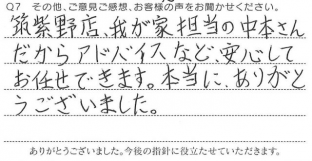 Q7 その他、ご意見ご感想、お客様の声をお聞かせください。
筑紫野店、我が家担当の中本さん
だからアドバイスなど、安心して
お任せできます。本当に、ありがと
うございました。
ありがとうございました。今後の指針に役立たせていただきます。